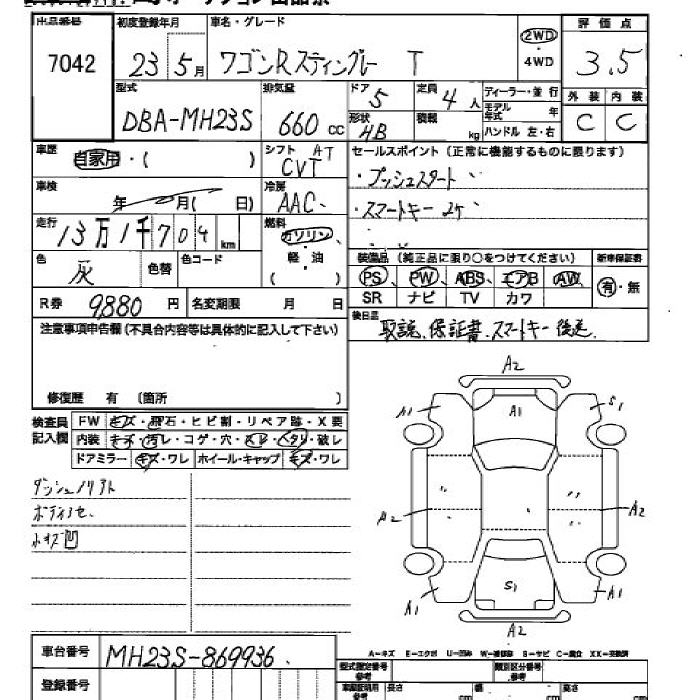 出品番号 初度登録年月 車名・グレード 評価点
7042 23年5月 ワゴンRスティングレー T 2WD・4WD 3.5
型式 排気量 ドア 5 定員 4人 ディーラー・並行 外装 内装
DBA-MH23S 660cc 形状 HB 積載 kg モデル年式 年 ハンドル 左・右 C C
車歴 自家用・( ) シフト AT CVT セールスポイント(正常に機能するものに限ります)
・プッシュスタート
車検 年 月( 日) 冷房 AAC ・スマートキー 2ケ
走行 13万1千704km 燃料 ガソリン、軽・油 ( )
色 灰 色替 色コード 装備品 (純正品に限り○をつけてください) 新車保証書
PS PW ABS エアB AW 有・無
SR ナビ TV カワ
R券 9880円 名変期限 月 日
後日品 取説、保証書、スマートキー後送
注意事項申告欄(不具合内容等は具体的に記入して下さい)
修復歴 有 (箇所 )
検査員記入欄 FW キズ・飛石・ヒビ割・リペア跡・X要
内装 キズ・汚レ・コゲ・穴・スレ・ヘタリ・破レ
ドアミラー キズ・ワレ ホイール・キャップ キズ・ワレ
A2
A1 A1 S1
A2 A2
S1
A1 A1
A2
A-キズ E-エクボ U-凹み W-補修跡 S-サビ C-腐食 XX-交換済
車台番号 MH23S-869936
型式指定番号 類別区分番号
登録番号 長さ cm 幅 cm 高さ cm